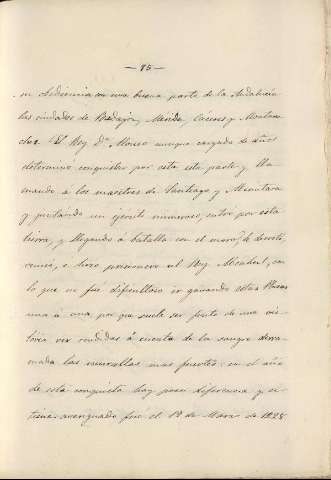 —75—
su obediencia con una buena parte de la Andalucia
las ciudades de Badajoz, Merida, Caceres y Montan
chez. El Rey Dn Alonso aunque cargado de años
determinó conquistar por esta parte y lla
mando à los maestres de Santiago y Alcantara
y juntando un ejercito numeroso, entro por esta
tierra, y llegando à batalla con el moro, le derrotó,
venció, e hizo prisionero al Rey con
lo que no fué dificultoso ir ganando estas Plazas
una à una por que suele ser fruto de una vic
toria ver rendidas à cuenta de la sangre derra
mada las murallas mas fuertes: en el año
de esta conquista hay poca diferencia y se
tiene averiguado fué el 12 de Marzo de 1228